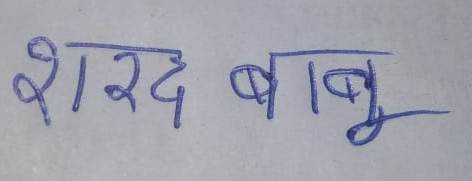 शरद बाबू